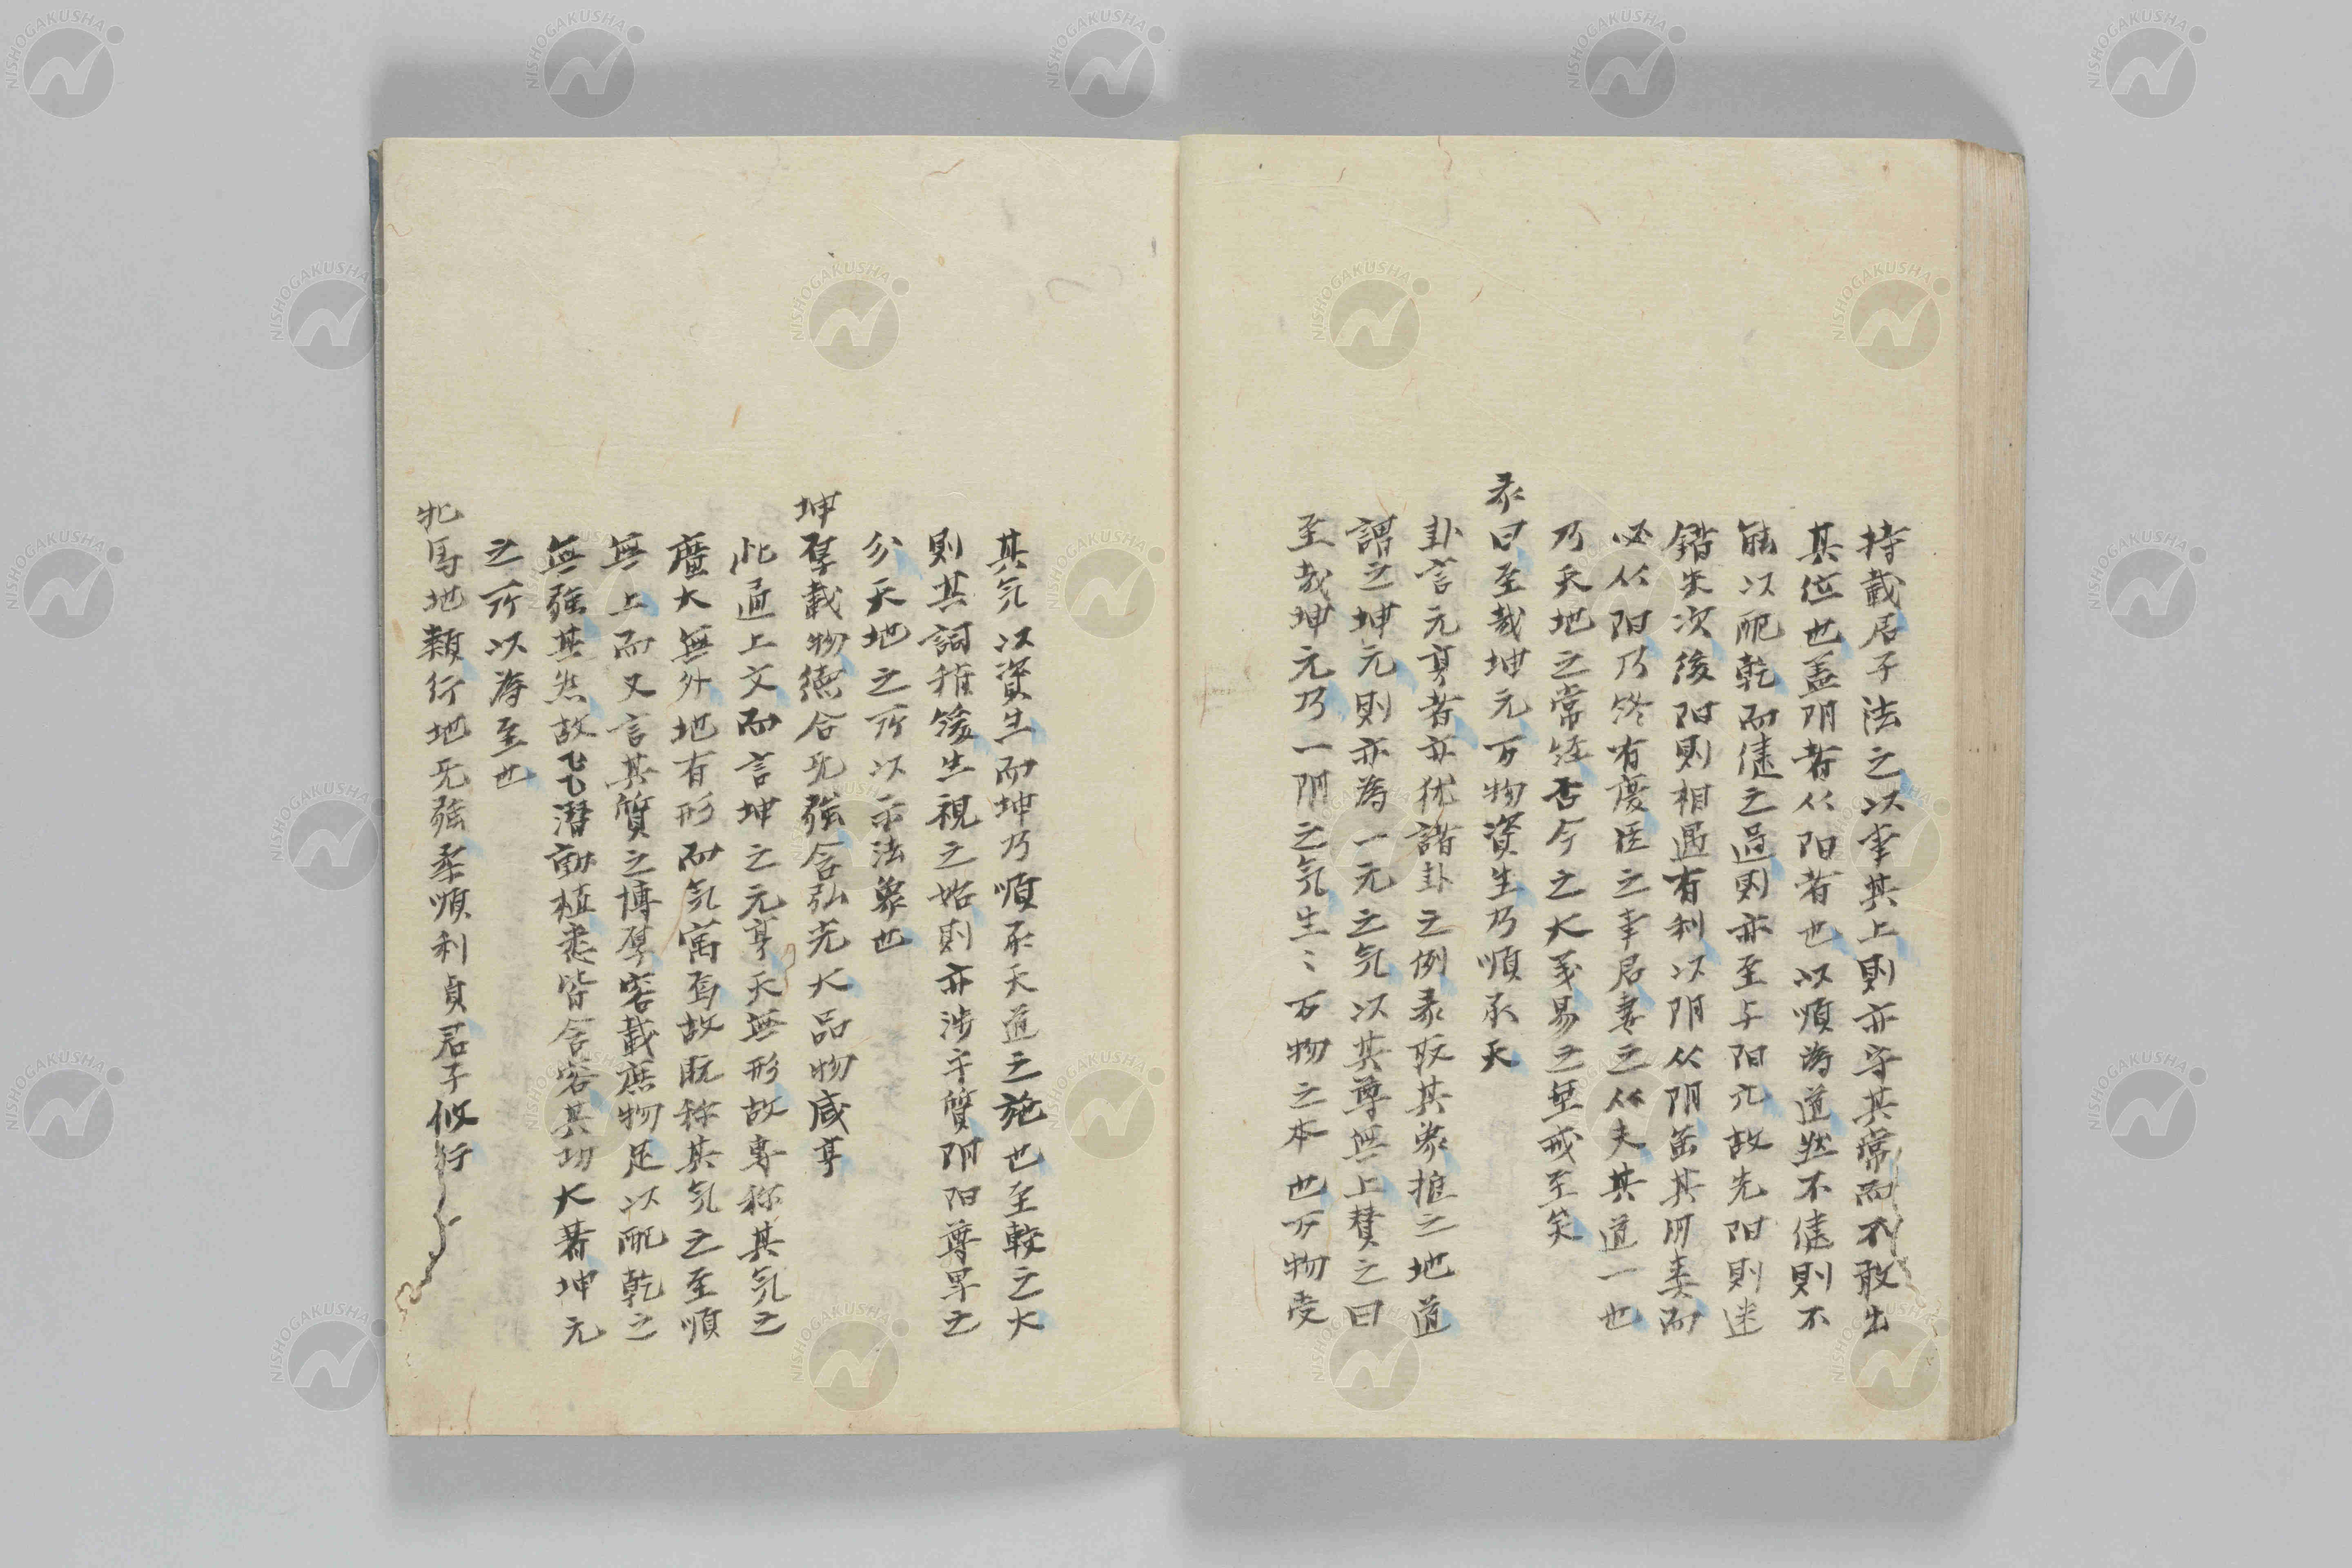 持載君子法之以事其上則亦守其常而不敢出
其位也盖阴者从阳者也以順為道然不健則不
能以配乾而健之過則亦至与阳亢故先阳則迷
錯失次後阳則相遇有利以阴从阴虽其同妻而
必从阳乃終有慶臣之事君妻之从夫其道一也
乃天地之常経古今之大義易之至戒至矣
彖曰至哉坤元万物資生乃順承天
卦言元亨者亦犹諸卦之例彖取其象推之地道
謂之坤元則亦為一元之気以其尊無上賛之曰
至哉坤元乃一阴之気生〻万物之本也万物受
其気以資生而坤乃順承天道之施也至較之大
則其詞稚後生視之始則亦渉乎質阴阳尊卑之
分天地之所以示法象也
坤厚載物徳合无強含弘光大品物咸亨
此通上文而言坤之元亨天無形故専称其気之
廣大無外地有形而気寓焉故既称其気之至順
無上而又言其質之博厚容載庶物足以配乾之
無強其然故飞潜動植悉皆含容其功大著坤元
之所以為至也
牝馬地類行地无強柔順利貞君子攸行